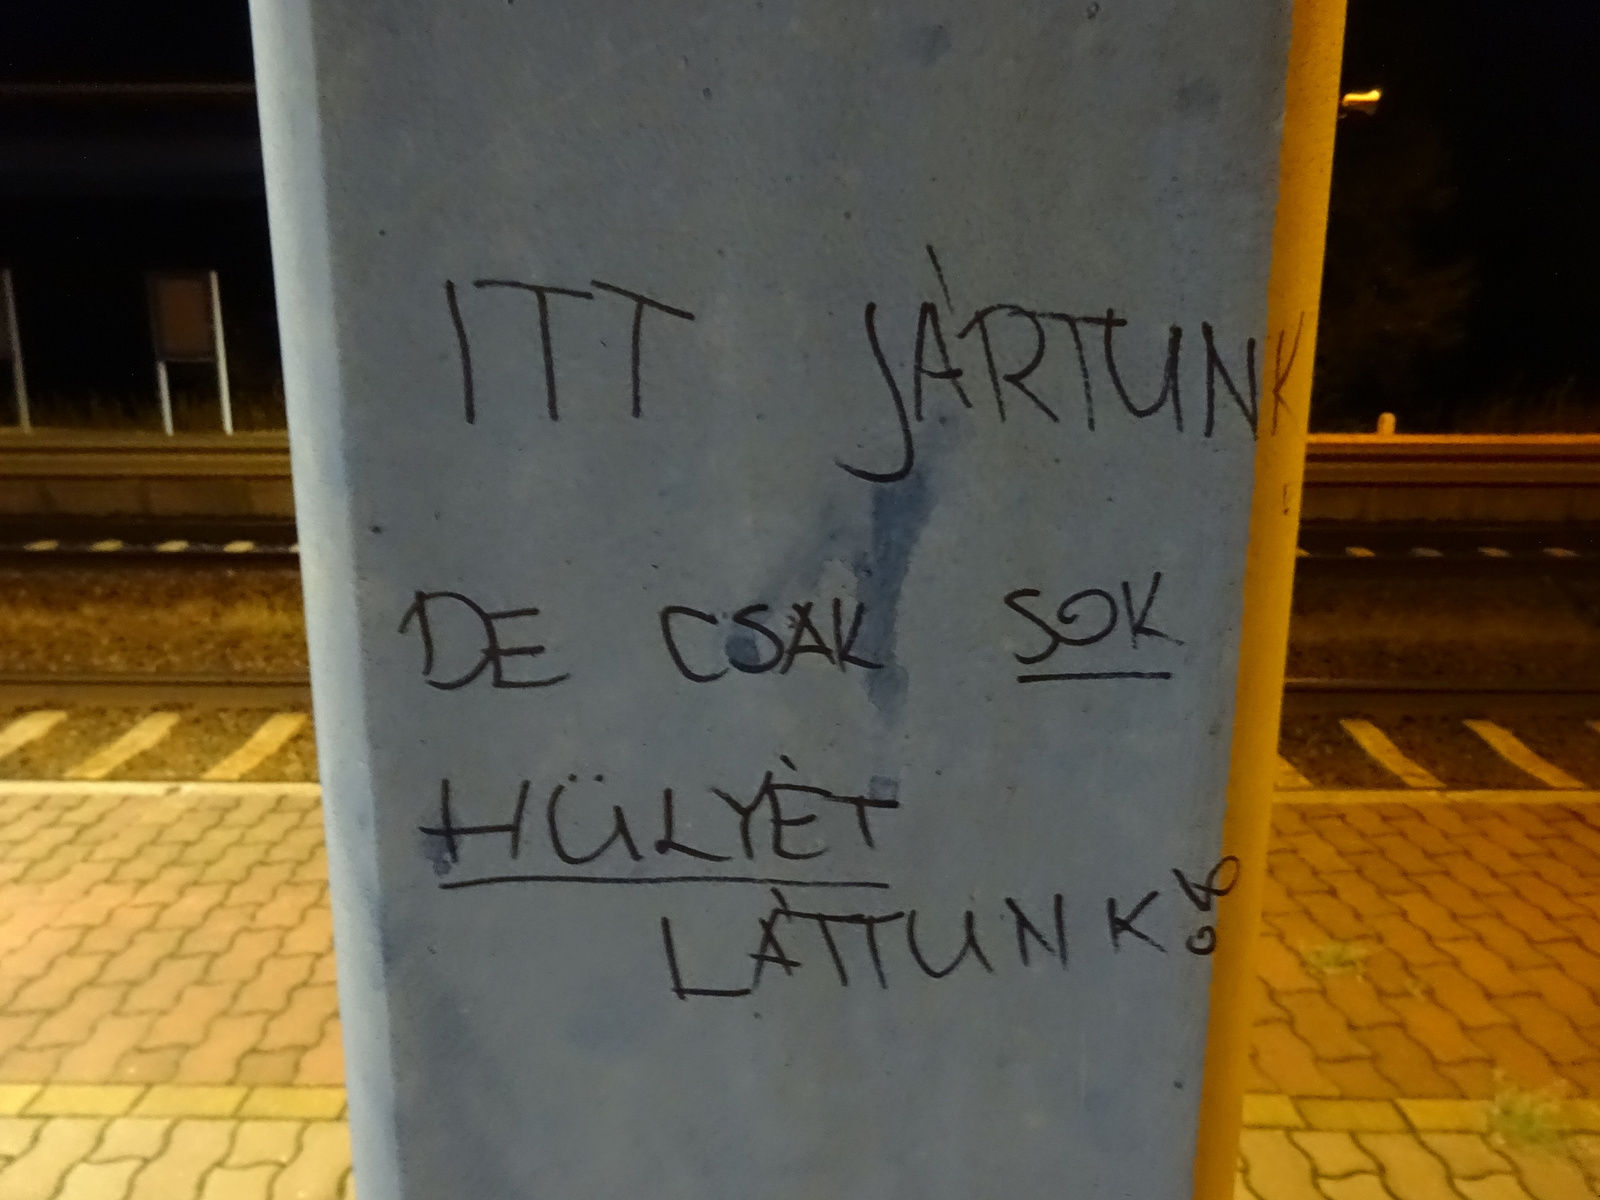 ITT JÁRTUNK
DE CSAK SOK
HÜLYÉT
LÁTTUNK!